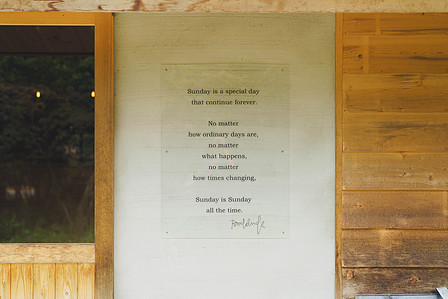 Sunday is a special day
that continue forever.
No matter
how ordinary days are,
no matter
what happens,
no matter
how times changing,
Sunday is Sunday
all the time.